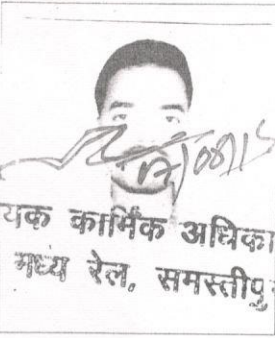 यक कार्मिक अधिका
मध्य रेल, समस्तीपु